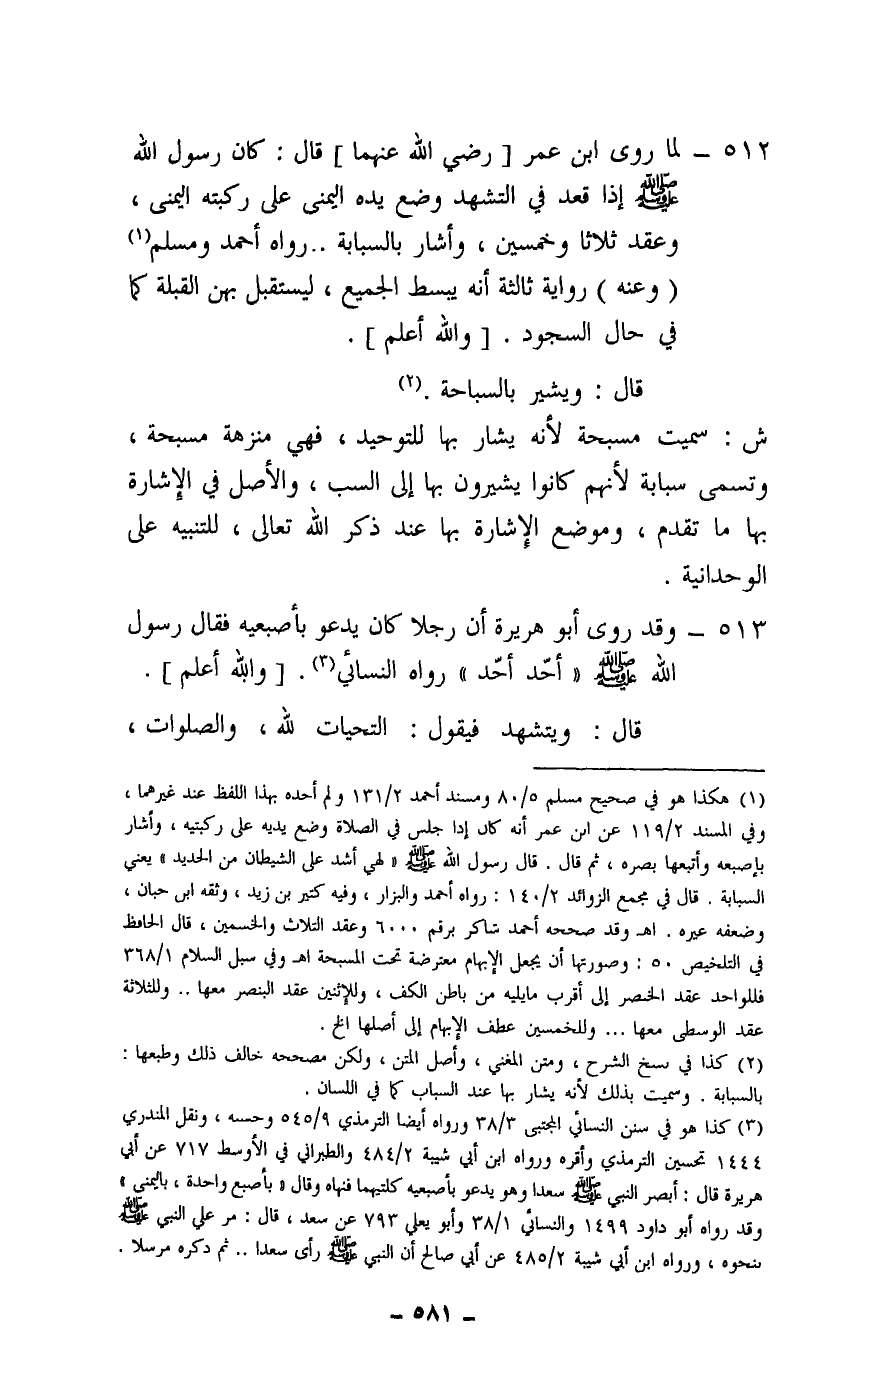 ٥١٢ – لما روى ابن عمر [ رضي الله عنهما ] قال : كان رسول الله
ﷺ إذا قعد في التشهد وضع يده اليمنى على ركبته اليمنى ،
وعقد ثلاثا وخمسين ، وأشار بالسبابة ..رواه أحمد ومسلم(١)
( وعنه ) رواية ثالثة أنه يبسط الجميع ، ليستقبل بهن القبلة كما
في حال السجود . [ والله أعلم ] .
قال : ويشير بالسباحة .(٢)
ش : سميت مسبحة لأنه يشار بها للتوحيد ، فهي منزهة مسبحة ،
وتسمى سبابة لأنهم كانوا يشيرون بها إلى السب ، والأصل في الإشارة
بها ما تقدم ، وموضع الإشارة بها عند ذكر الله تعالى ، للتنبيه على
الوحدانية .
٥١٣ – وقد روى أبو هريرة أن رجلا كان يدعو بأصبعيه فقال رسول
الله ﷺ « أحّد أحّد » رواه النسائي(٣) . [ والله أعلم ] .
قال : ويتشهد فيقول : التحيات لله ، والصلوات ،
(١) هكذا هو في صحيح مسلم ٨٠/٥ ومسند أحمد ١٣١/٢ ولم أجده بهذا اللفظ عند غيرهما ،
وفي المسند ١١٩/٢ عن ابن عمر أنه كان إذا جلس في الصلاة وضع يديه على ركبتيه ، وأشار
بإصبعه وأتبعها بصره ، ثم قال . قال رسول الله ﷺ « لهي أشد على الشيطان من الحديد » يعني
السبابة . قال في مجمع الزوائد ١٤٠/٢ : رواه أحمد والبزار ، وفيه كثير بن زيد ، وثقه ابن حبان ،
وضعفه غيره . اهـ وقد صححه أحمد شاكر برقم ٦٠٠٠ وعقد الثلاث والخمسين ، قال الحافظ
في التلخيص ٥٠ : وصورتها أن يجعل الإبهام معترضة تحت المسبحة اهـ وفي سبل السلام ٣٦٨/١
فللواحد عقد الخنصر إلى أقرب مايليه من باطن الكف ، وللإثنين عقد البنصر معها .. وللثلاثة
عقد الوسطى معها ... وللخمسين عطف الإبهام إلى أصلها الخ .
(٢) كذا في نسخ الشرح ، ومتن المغني ، وأصل المتن ، ولكن مصححه خالف ذلك وطبعها :
بالسبابة . وسميت بذلك لأنه يشار بها عند السباب كما في اللسان .
(٣) كذا هو في سنن النسائي المجتبى ٣٨/٣ ورواه أيضا الترمذي ٥٤٥/٩ وحسنه ، ونقل المنذري
١٤٤٤ تحسين الترمذي وأقره ورواه ابن أبي شيبة ٤٨٤/٢ والطبراني في الأوسط ٧١٧ عن أبي
هريرة قال : أبصر النبي ﷺ سعدا وهو يدعو بأصبعيه كلتيهما فنهاه وقال « بأصبع واحدة ، باليمنى »
وقد رواه أبو داود ١٤٩٩ والنسائي ٣٨/١ وأبو يعلي ٧٩٣ عن سعد ، قال : مر علي النبي ﷺ
بنحوه ، ورواه ابن أبي شيبة ٤٨٥/٢ عن أبي صالح أن النبي ﷺ رأى سعدا .. ثم ذكره مرسلا .
– ٥٨١ –